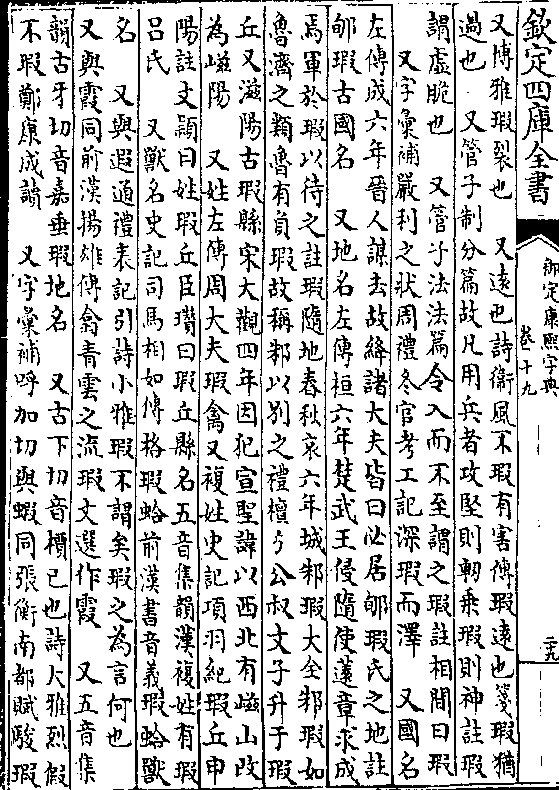 欽定四庫全書
御定康熙字典
卷十九
二九
又博雅瑕裂也　又遠也詩衞風不瑕有害傳瑕遠也箋瑕猶
過也　又管子制分篇故凡用兵者攻堅則軔乘瑕則神註瑕
謂虛脆也　又管子法法篇令入而不至謂之瑕註相間曰瑕
又字彙補嚴利之狀周禮冬官考工記深瑕而澤　又國名
左傳成六年晉人謀去故絳諸大夫皆曰必居郇瑕氏之地註
郇瑕古國名　又地名左傳桓六年楚武王侵隨使薳章求成
焉軍於瑕以待之註瑕隨地春秋哀六年城邾瑕大全邾瑕如
魯濟之類魯有負瑕故稱邾以別之禮檀弓公叔文子升于瑕
丘又滋陽古瑕縣宋大觀四年因犯宣聖諱以西北有嵫山改
為嵫陽　又姓左傳周大夫瑕禽又複姓史記項羽紀瑕丘申
陽註文穎曰姓瑕丘臣瓚曰瑕丘縣名五音集韻漢複姓有瑕
呂氏　又獸名史記司馬相如傳格瑕蛤前漢書音義瑕蛤獸
名　又與遐通禮表記引詩小雅瑕不謂矣瑕之為言何也
又與霞同前漢揚雄傳翕青雲之流瑕文選作霞　又五音集
韻古牙切音嘉垂瑕地名　又古下切音檟已也詩大雅烈假
不瑕鄭康成讀　又字彙補呼加切與蝦同張衡南都賦駿瑕